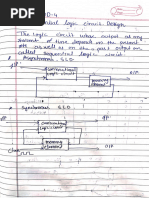 UNIT-4
Sequential Logic Circuit Design
The Logic circuit whose output at any
instant of time depend on the present
i/p as well as on the past output is
called sequential logic circuit
Asynchronous SLD
Combinational
logic circuit
i/p
O/P
Memory
Synchronous SLD
Combinational
logic circuit
O/P
Memory
Clock